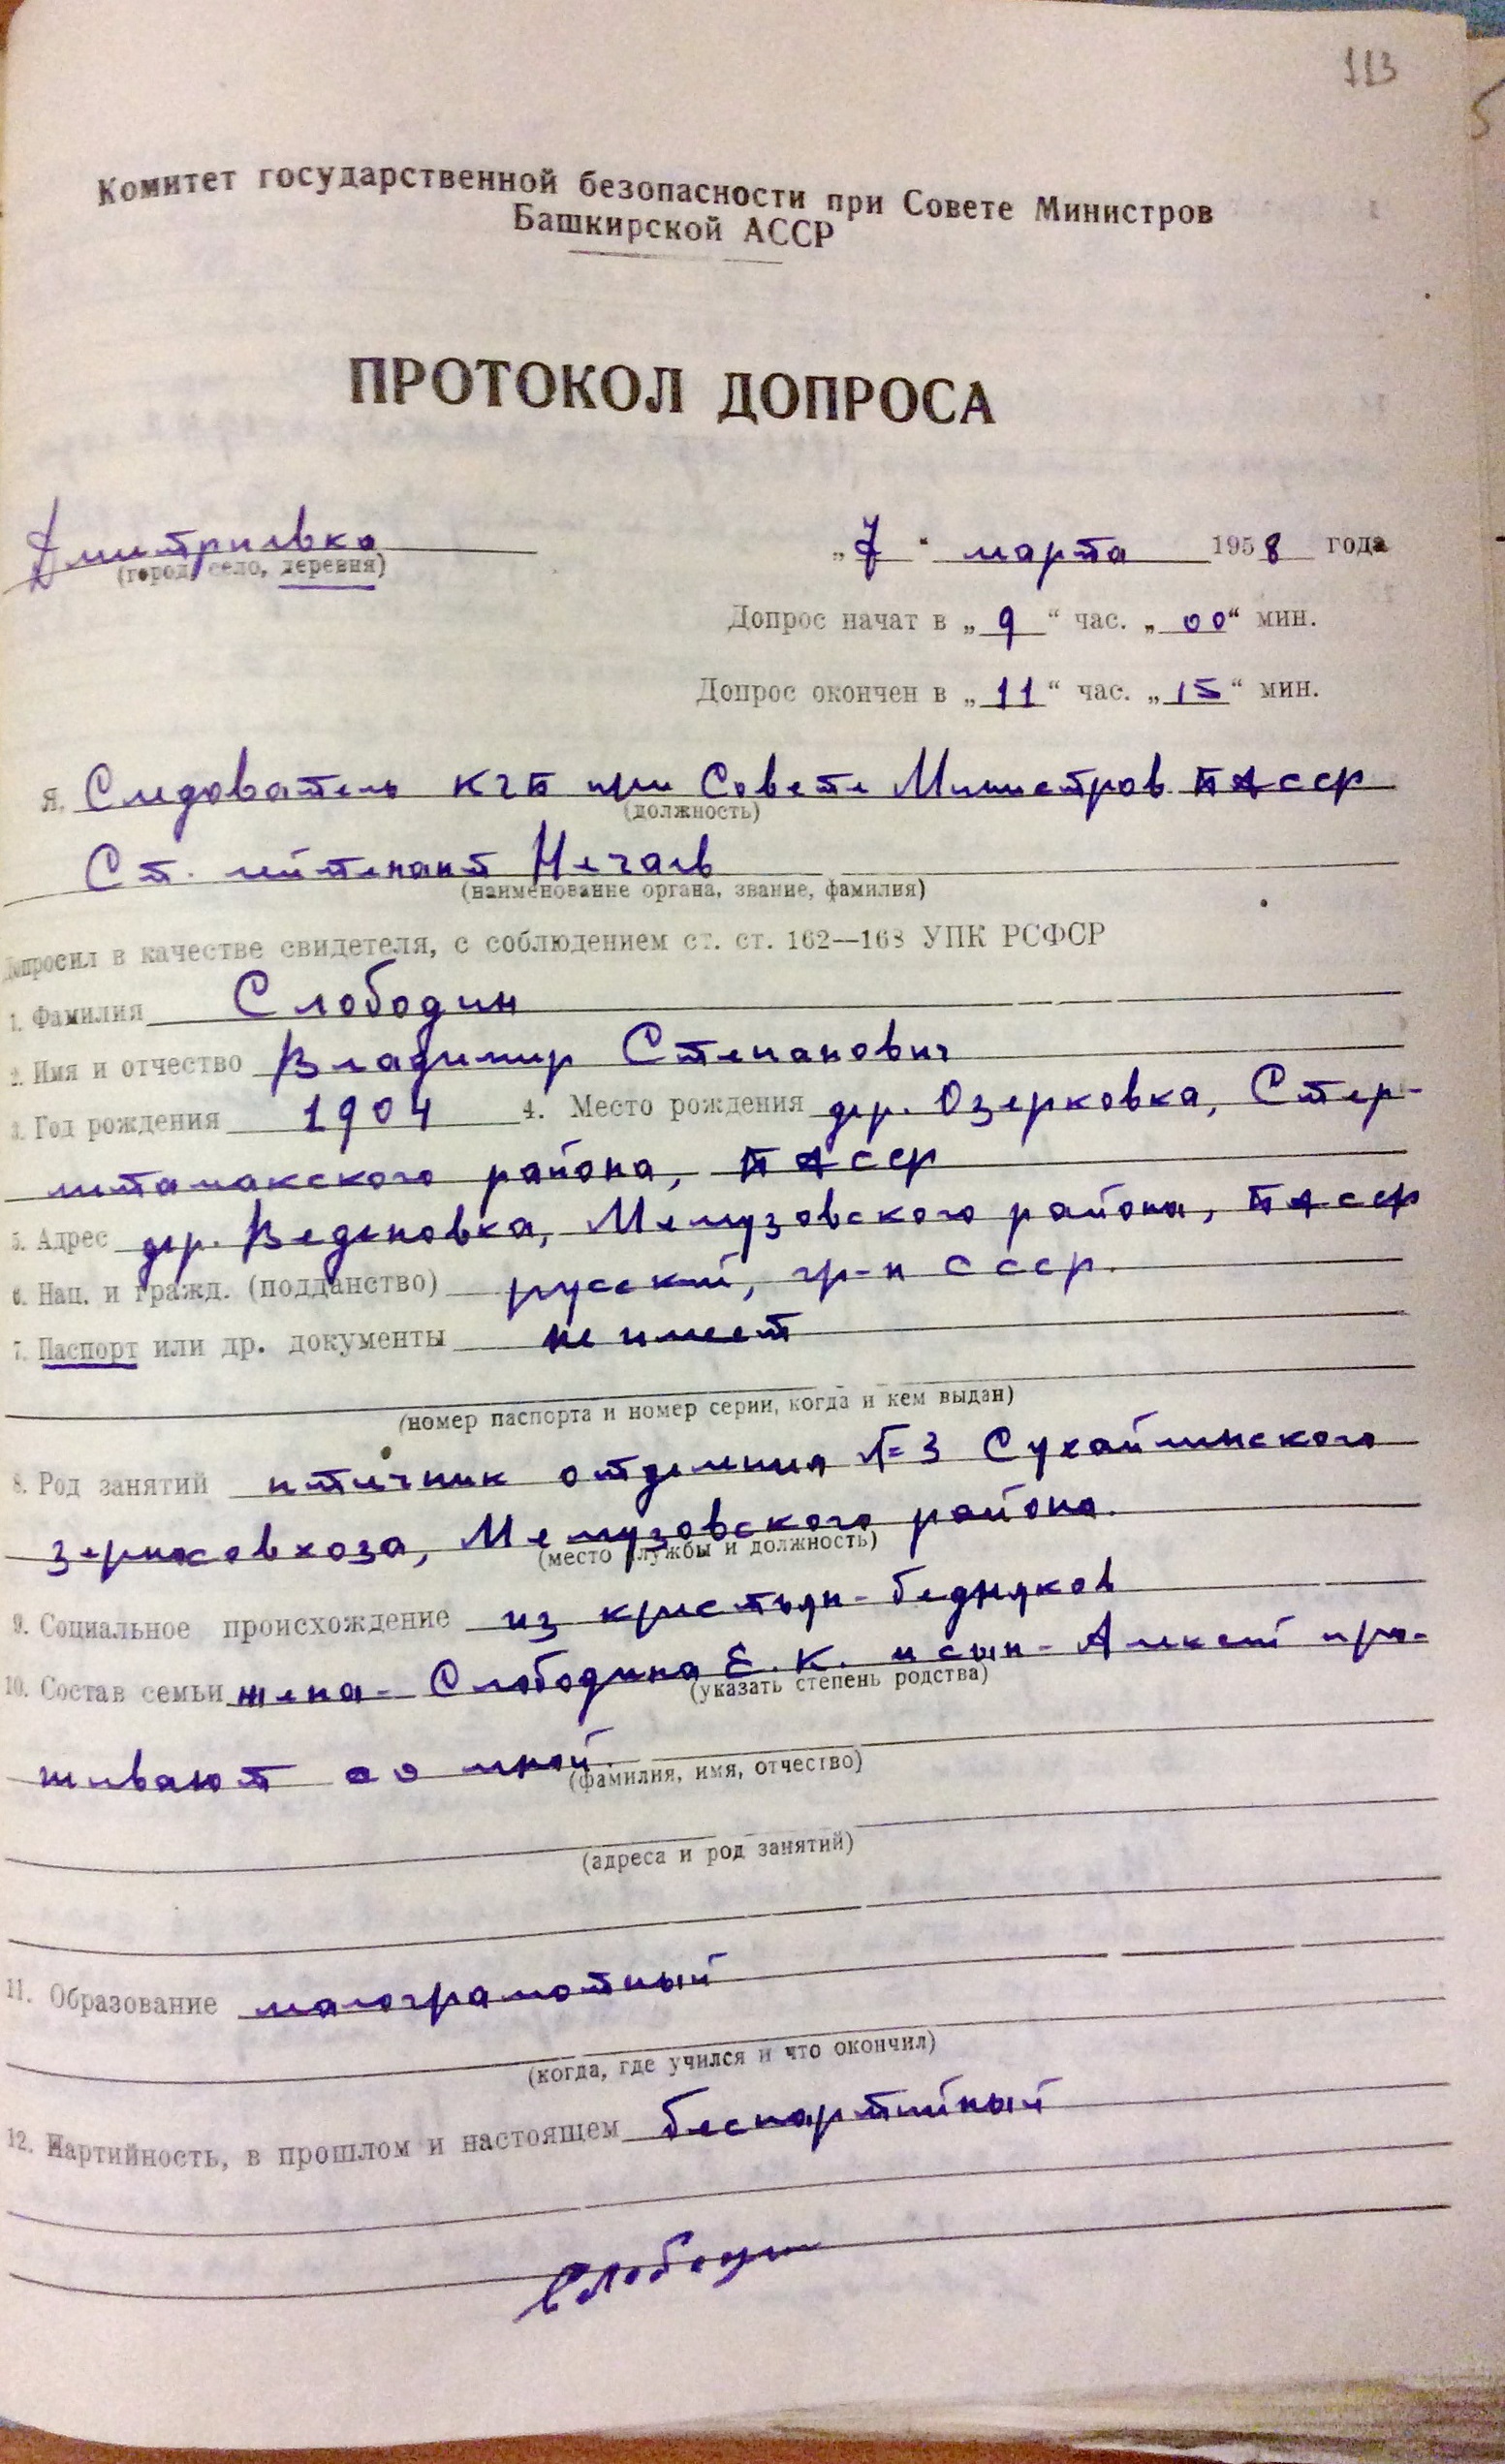 113
Комитет государственной безопасности при Совете Министров
Башкирской АССР
ПРОТОКОЛ ДОПРОСА
Дмитриевка
(город, село, деревня)
„ 7 “ марта 1958 года
Допрос начат в „ 9 “ час. „ 00 “ мин.
Допрос окончен в „ 11 “ час. „ 15 “ мин.
Я, Следователь КГБ при Совете Министров БАССР
(должность)
Ст. лейтенант Нечаев
(наименование органа, звание, фамилия)
Допросил в качестве свидетеля, с соблюдением ст. ст. 162—168 УПК РСФСР
1. Фамилия Слободин
2. Имя и отчество Владимир Степанович
3. Год рождения 1904 4. Место рождения дер. Озерковка, Стер-
литамакского района, БАССР
5. Адрес дер. Веденовка, Мелеузовского района, БАССР
6. Нац. и гражд. (подданство) русский, гр-н СССР.
7. Паспорт или др. документы не имеет
(номер паспорта и номер серии, когда и кем выдан)
8. Род занятий птичник отделения № 3 Сухайлинского
зерносовхоза, Мелеузовского района.
(место службы и должность)
9. Социальное происхождение из крестьян-бедняков
10. Состав семьи жена - Слободина Е. К. и сын - Алексей про-
(указать степень родства)
живают со мной.
(фамилия, имя, отчество)
(адреса и род занятий)
11. Образование малограмотный
(когда, где учился и что окончил)
12. Партийность, в прошлом и настоящем беспартийный
Слободин